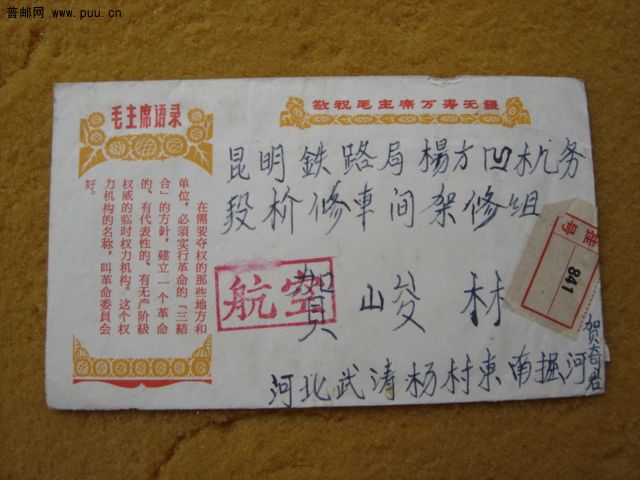 普邮网 www.puu.cn
毛主席语录
在需要夺权的那些地方和
单位，必须实行革命的「三结
合」的方針，建立一个革命
的、有代表性的、有无产阶級
权威的临时权力机构。这个权
力机构的名称，叫革命委員会
好。
敬祝毛主席万寿无疆
昆明鉄路局楊方凹机务
段桥修車间架修组
航空
賀峻林
挂号
841
河北武清杨村東南掘河
賀